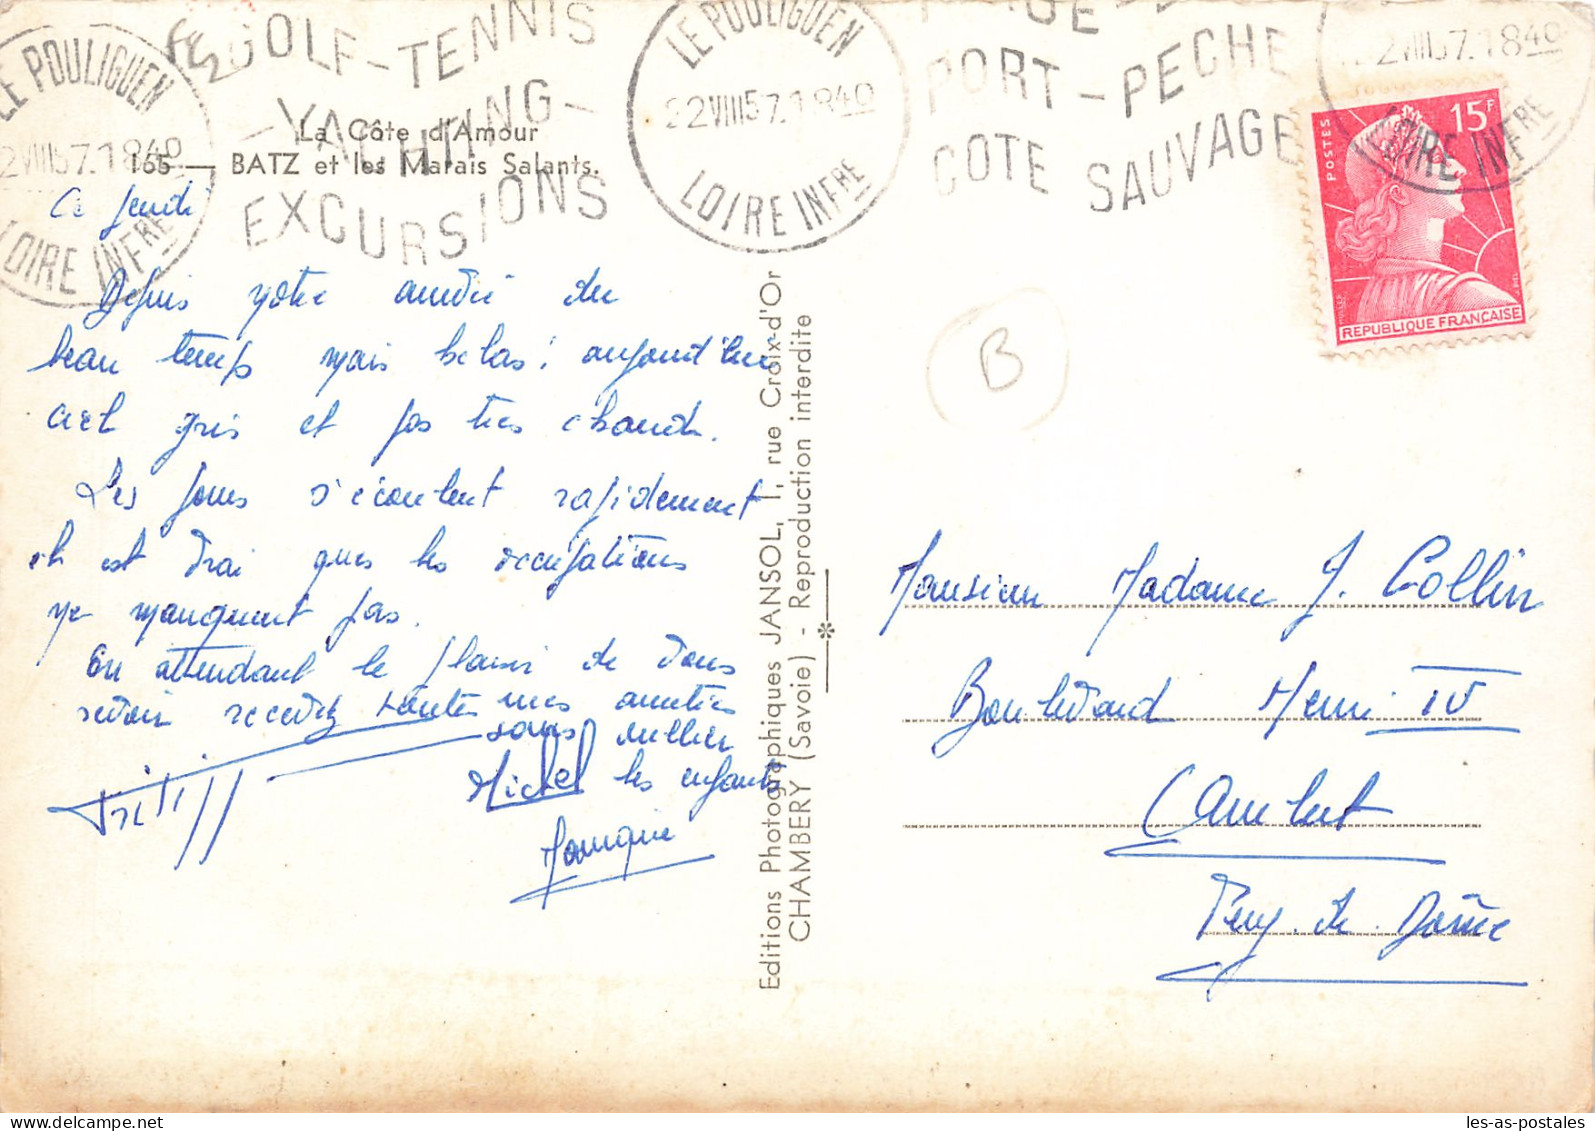 LE POULIGUEN
22 VIII 57. 1840
LOIRE INFRE
GOLF - TENNIS
- YACHTING -
EXCURSIONS
LE POULIGUEN
22 VIII 57. 1840
LOIRE INFRE
PORT - PECHE
COTE SAUVAGE
22 VIII 57. 1840
LOIRE INFRE
POSTES
15F
REPUBLIQUE FRANÇAISE
La Côte d'Amour
165 — BATZ et les Marais Salants.
Ce jeudi
Depuis notre arrivée du
beau temps mais helas ! aujourd'hui
ciel gris et pas très chaud.
Les jours s'écoulent rapidement
il est vrai que les occupations
ne manquent pas.
En attendant le plaisir de vous
revoir recevez toutes mes amitiés
sans oublier
Michel les enfants
B
Editions Photographiques JANSOL, 1, rue Croix-d'Or
CHAMBERY (Savoie) - Reproduction interdite
Monsieur Madame J. Collin
Boulevard Henri IV
Ambert
Puy-de-Dôme
les-as-postales